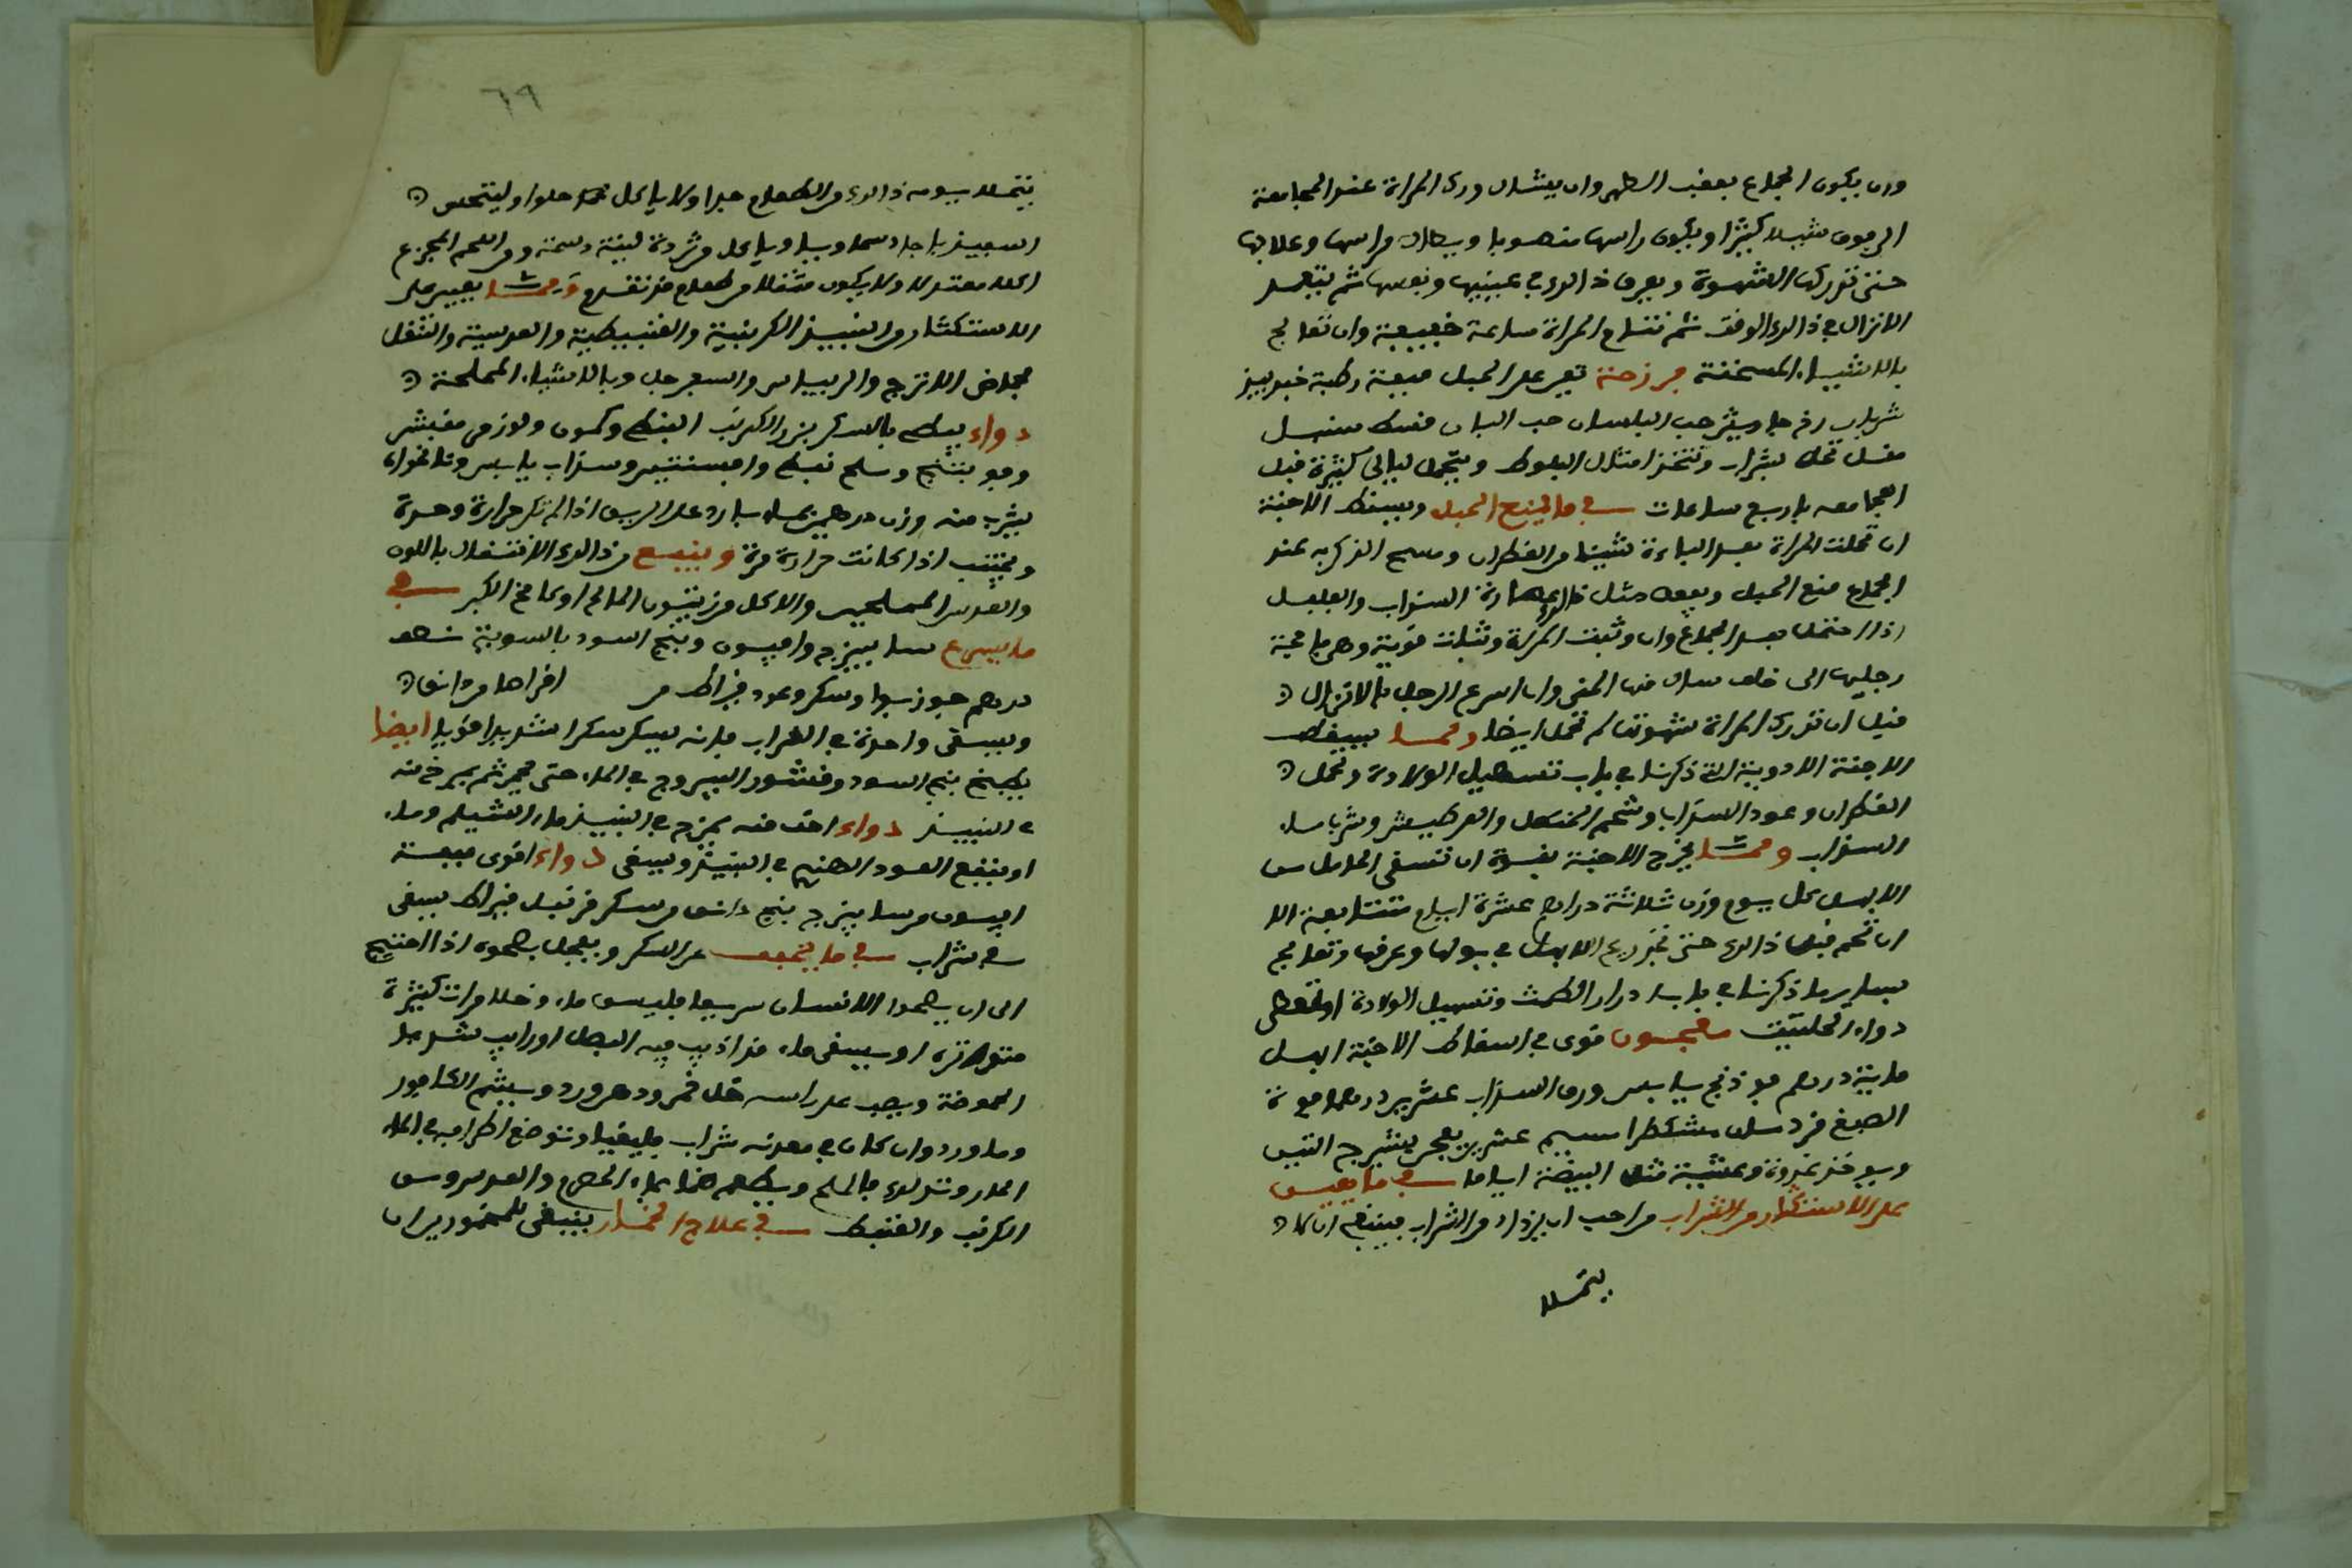 وان يكون الجماع بعقب الطهر وان يشال ورك المراة عند المجامعة
الى فوق شيلا كثيرا ويكون راسها منصوبا ويطال مراسها وعلاجها
حتى تدركها الشهوة ويعرف ذالك في عينيها ونفسها ثم يتعمد
الانزال في ذالك الوقت ثم تنام المراة ساعة خفيفة وان تعالج
بالاشياء المسخنة فرزجة تعين على الحبل ميعة رطبة
شراب حب البلسان حب البان قسط سنبل
مقل تحل بشراب وتتخذ امثال البلوط ويتحمل ليالي كثيرة قبل
المجامعه باربع ساعات في ما يمنع الحبل ويسقط الاجنة
ان تحملت المراة بعد الباءة شيئا من القطران ومسح الذكر به عند
الجماع منع الحبل ويفعل مثل ذالك عصارة السذاب والفلفل
اذا احتمل بعد الجماع وان وثبت المراة وثبات قوية وهي جامحة
رجليها الى خلف سال منها المني وان اسرع الرجل بالانزال
قبل ان تدرك المراة شهوتها لم تحمل ايضا ومما يسقط
الاجنة الادوية التي ذكرنا في باب تسهيل الولادة وتحمل
القطران وعود السذاب وشحم الحنظل والعرطنيثا وشرب ماء
السذاب ومما يخرج الاجنة بقوة ان تسقى الحامل من
الابهل كل يوم وزن ثلاثة دراهم عشرة ايام متتابعة الا
ان تحم قبل ذالك حتى تجد ريح الابهل في بولها وعرقها وتعالج
بساير ما ذكرنا في باب ادرار الطمث وتسهيل الولادة او تعطى
دواء الحلتيت معجون قوى في اسقاط الاجنة ابهل
ماية درهم فوذنج يابس ورق السذاب عشرين درهما فوة
الصبغ فردمان مشكطرا مسيع عشرين يعجن بشيرج التين
ويوخذ غدوة وعشية مثل البيضة اياما في ما يعين
على الاستكثار من الشراب من احب ان يزداد من الشراب فينبغي ان لا
يتملا
٦٩
يتملا يومه ذالك من الطعام جدا ولا ياكل حلوا وليتحس
اسفيذباجا دسما وياكل من ثردة لينة دسمة ومن اللحم المجزع
اكلا معتدلا ولا يكون متملا من طعام قد تقدم ومما يعين على
الاستكثار من النبيذ الكرنبية والقنبيطية والعدسية والتنقل
بحماض الاترج والريباس والسفرجل وبالاشياء المملحة
دواء يبطى بالسكر بزر الكرنب النبطى وكمون ولوز مر مقشر
وفوتنج وملح نبطى وافسنتين وسذاب يابس ونانخواه
يشرب منه وزن درهمين بماء بارد على الريق اذا لم تكن حرارة وحدة
ويجتنب اذا كانت حرارة مرة وينفع من ذالك الانتقال باللوز
والفستق المملحين والاكل من زيتون المالح او كامخ الكبر في
ما يسرع سا بيزج وافيون وبنج اسود بالسوية نصف
درهم جوز بوا وسكر وعود قيراط من اقراصا من دانق
ويسقى واحدة في الشراب فانه يسكر سكرا شديدا قويا ايضا
يطبخ بنج اسود وقشور اليبروج في الماء حتى يحمر ثم يمزج منه
في النبيذ دواء اخف منه يمزج في النبيذ ماء الشيلم وماء
او ينقع العود الهندي في النبيذ ويسقى دواء اقوى ميعة
افيون من سا بيزج بنج دانق من سكر قرنفل قيراط يسقى
في شراب في ما يخفف من السكر ويعجل بصحوه اذا احتيج
الى ان يصحوا الانسان سريعا فليسق ماء وخلا مرات كثيرة
متواترة او يسقى ماء قد اذيب فيه البصل او رايب شديد
الحموضة ويصب على راسه خل خمر ودهن ورد ويشم الكافور
وماورد وان كان في معدته شراب فليقيا وتوضع اطرافه في الماء
الحار وتدلك بالملح ويطعم حصرم والعدس ومن
الكرنب والقنبيط في علاج الخمار ينبغى للمخمورين ان